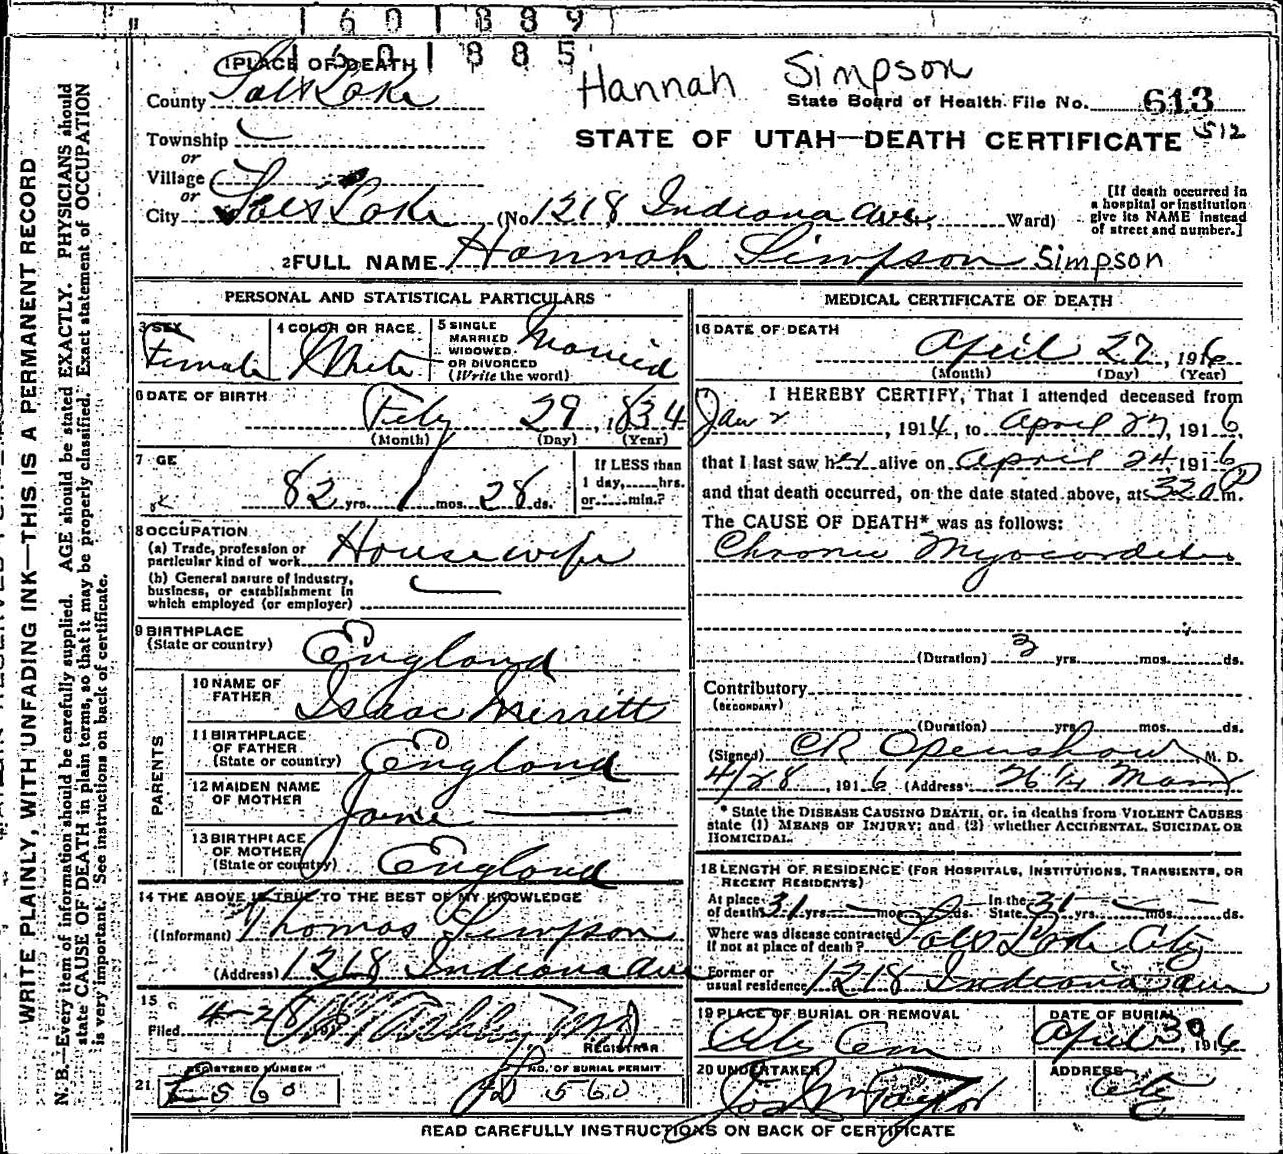 1 6 0 1 8 8 9
1 6 0 1 8 8 5
Hannah Simpson
1 PLACE OF DEATH
County Salt Lake
State Board of Health File No. 613
STATE OF UTAH—DEATH CERTIFICATE 512
Township
or
Village
or
City Salt Lake (No. 1218 Indiana Ave, Ward)
[If death occurred in
a hospital or institution
give its NAME instead
of street and number.]
2 FULL NAME Hannah Simpson Simpson
PERSONAL AND STATISTICAL PARTICULARS
3 SEX Female
4 COLOR OR RACE White
5 SINGLE
MARRIED
WIDOWED
OR DIVORCED
(Write the word) Married
6 DATE OF BIRTH Feby 29, 1834
(Month) (Day) (Year)
7 GE 82 yrs. 1 mos. 28 ds.
If LESS than
1 day, hrs.
or min.?
8 OCCUPATION
(a) Trade, profession or
particular kind of work Housewife
(b) General nature of industry,
business, or establishment in
which employed (or employer)
9 BIRTHPLACE
(State or country) England
PARENTS
10 NAME OF
FATHER Isaac Merritt
11 BIRTHPLACE
OF FATHER
(State or country) England
12 MAIDEN NAME
OF MOTHER Jane
13 BIRTHPLACE
OF MOTHER
(State or country) England
14 THE ABOVE IS TRUE TO THE BEST OF MY KNOWLEDGE
(Informant) Thomas Simpson
(Address) 1218 Indiana Ave
15
Filed 4-28 191
REGISTRAR
21
REGISTERED NUMBER
E 560
NO. OF BURIAL PERMIT
560
MEDICAL CERTIFICATE OF DEATH
16 DATE OF DEATH
April 27, 1916
(Month) (Day) (Year)
I HEREBY CERTIFY, That I attended deceased from
Jan 2, 1914, to April 27, 1916,
that I last saw her alive on April 24, 1916
and that death occurred, on the date stated above, at 320 P m.
The CAUSE OF DEATH* was as follows:
Chronic Myocarditis
(Duration) 3 yrs. mos. ds.
Contributory
(SECONDARY)
(Duration) yrs. mos. ds.
(Signed) CR Openshaw M. D.
4/28, 1916 (Address) 26 1/2 Main
* State the DISEASE CAUSING DEATH, or, in deaths from VIOLENT CAUSES
state (1) MEANS OF INJURY; and (2) whether ACCIDENTAL, SUICIDAL OR
HOMICIDAL.
18 LENGTH OF RESIDENCE (FOR HOSPITALS, INSTITUTIONS, TRANSIENTS, OR
RECENT RESIDENTS)
At place
of death 31 yrs. mos. ds. In the
State 31 yrs. mos. ds.
Where was disease contracted
If not at place of death? Salt Lake City
Former or
usual residence 1218 Indiana Ave
19 PLACE OF BURIAL OR REMOVAL
City Cem
DATE OF BURIAL
April 30, 1916
20 UNDERTAKER
Jos Wm Taylor
ADDRESS
City
READ CAREFULLY INSTRUCTIONS ON BACK OF CERTIFICATE
WRITE PLAINLY, WITH UNFADING INK—THIS IS A PERMANENT RECORD
N. B.—Every item of information should be carefully supplied. AGE should be stated EXACTLY. PHYSICIANS should
state CAUSE OF DEATH in plain terms, so that it may be properly classified. Exact statement of OCCUPATION
is very important. See instructions on back of certificate.